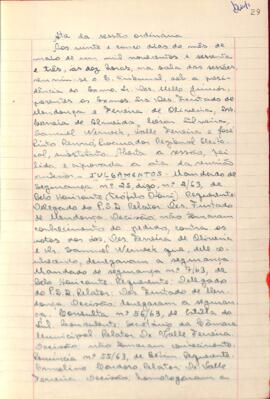 29
Ata da sessão ordinária
Aos vinte e cinco dias do mês de
maio de um mil novecentos e sessenta
e três, às dez horas, na sala das sessões
reuniu-se o E. Tribunal, sob a presi-
dência do Exmo. Sr. Des. Mello Junior,
presentes os Exmos. Srs. Des. Furtado de
Mendonça e Ferreira de Oliveira, Drs.
de Almeida,
Samuel Werneck, Valle Ferreira e José
Procurador Regional Eleito-
ral, substituto. Aberta a sessão, foi
lida e aprovada a ata da reunião
anterior. - JULGAMENTOS - Mandado de
Segurança nº 25, digo, nº 2/63, de
Belo Horizonte (Teófilo Otoni) Requerente
Delegado do P.S.D. Relator Des. Furtado
de Mendonça. Decisão: não tomaram
conhecimento do pedido, contra os
votos dos srs. Des. Ferreira de Oliveira
e Dr. Samuel Werneck que, dele co-
nhecendo, denegavam a segurança
Mandado de segurança nº 7/63, de
Belo Horizonte. Requerente: Delegado
do P.S.D. Relator: Des. Furtado de Men-
donça. Decisão: denegaram a seguran-
ça. Consulta nº 56/63, de
Consulente: Secretário da Câmara
Municipal. Relator Dr. Valle Ferreira.
Decisão: não tomaram conhecimento.
nº 55/63, de Betim. Requerente:
Cardoso. Relator Dr. Valle
Ferreira. Decisão: homologaram a